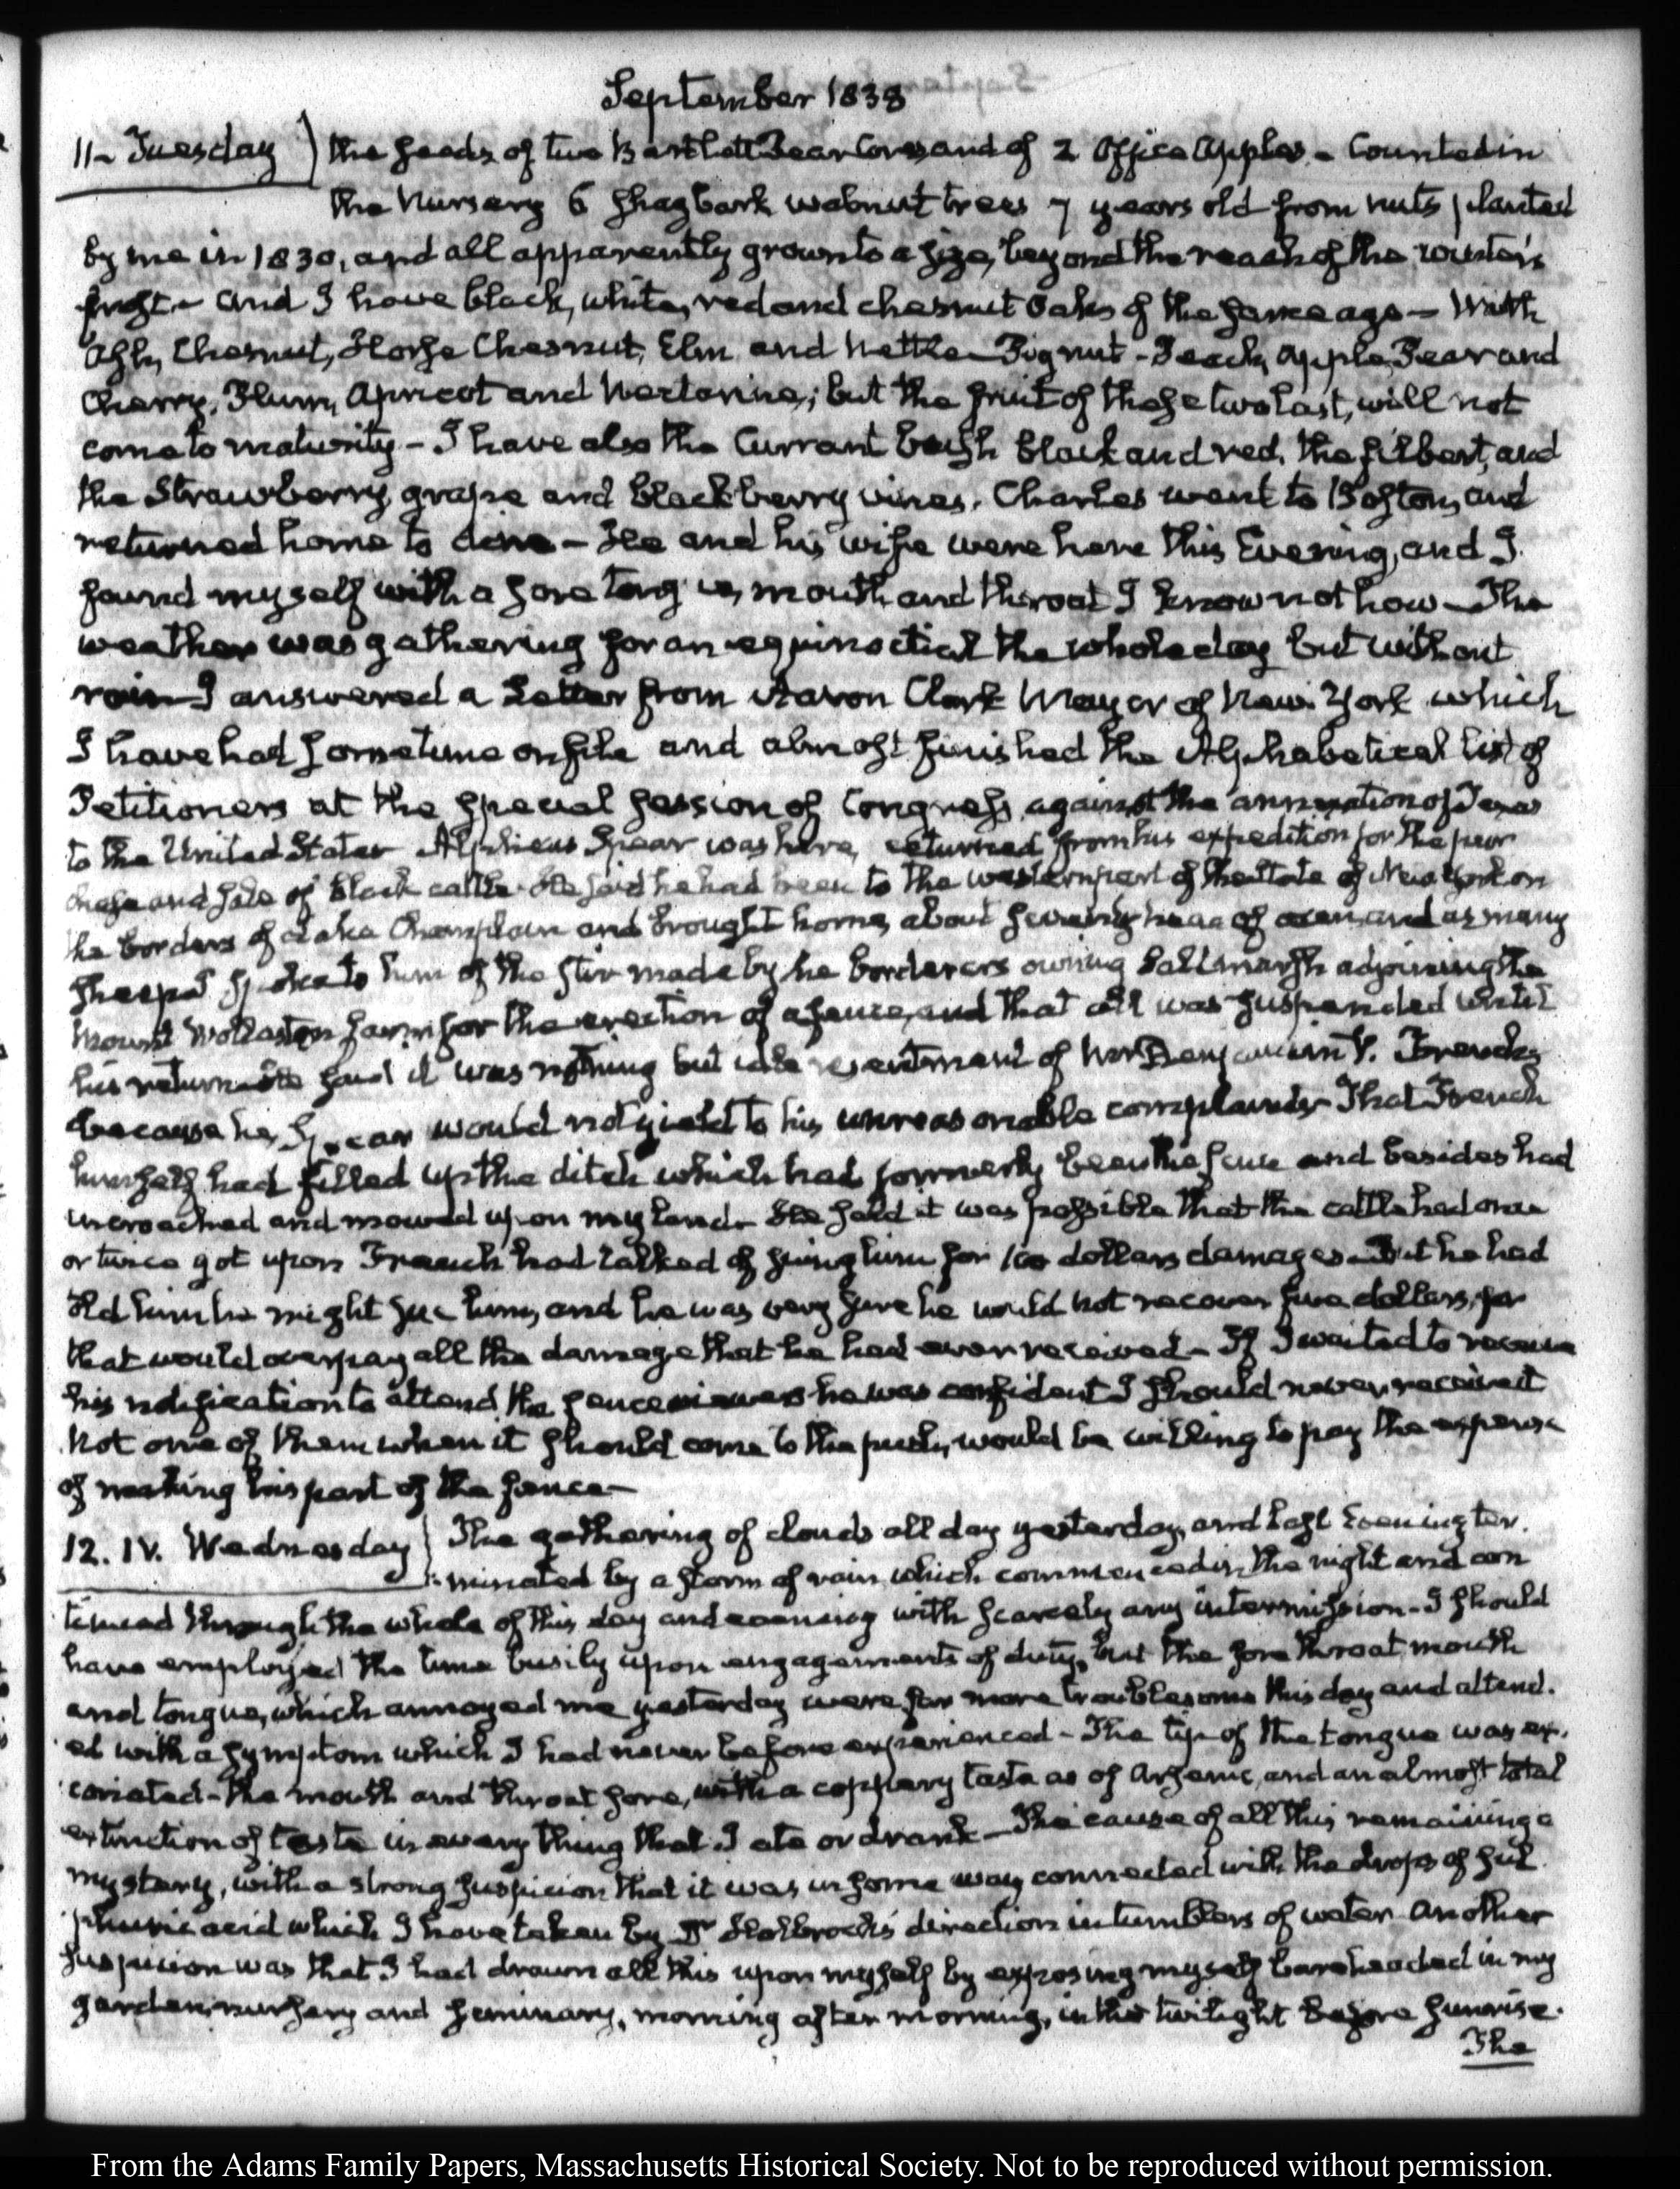 September 1838
11. Tuesday) the seeds of two Bartlett Pear Cores and of 2 Office Apples. Counted in
the Nursery 6 shagbark walnut trees 7 years old from nuts planted
by me in 1830, and all apparently grown to a size, beyond the reach of the winter's
frost. And I have black, white, red and chesnut Oaks of the same age — With
Ash, Chesnut, Horse Chesnut, Elm and Nettle — Pignut — Peach, Apple, Pear and
Cherry, Plum, Apricot and Nectarine; but the fruit of these two last, will not
come to maturity — I have also the Currant bush black and red, the filbert, and
the Strawberry, grape and blackberry vines. Charles went to Boston, and
returned home to dine — He and his wife were here this Evening, and I
found myself with a sore tongue, mouth and throat I know not how — The
weather was gathering for an equinoctial the whole day but without
rain — I answered a Letter from Aaron Clark Mayor of New York which
I have had some time on file and almost finished the Alphabetical list of
Petitioners at the special session of Congress against the annexation of Texas
to the United States Alpheus Spear was here, returned from his expedition for the pur
chase and sale of black cattle. He said he had been to the western part of the State of New York on
the borders of Lake Champlain and brought home, about seventy head of oxen, and as many
sheep. I spoke to him of the stir made by the borderers owning Saltmarsh adjoining the
Mount Wollaston farm for the erection of a fence, and that all was suspended until
his return. He said it was nothing but idle resentment of Mr Benjamin V. French
because he, Spear would not yield to his unreasonable complaints — That French
himself had filled up the ditch which had formerly been the fence and besides had
encroached and mowed upon my land. He said it was possible that the cattle had once
or twice got upon French had talked of suing him for 100 dollars damages — But he had
told him he might sue him, and he was very sure he would not recover five dollars, for
that would overpay all the damage that he had ever received — If I waited to receive
his notification to attend the fence viewers he was confident I should never receive it
Not one of them when it should come to the push, would be willing to pay the expense
of making his part of the fence —
12. IV. Wednesday) The gathering of clouds all day yesterday, and last Evening ter.
minated by a storm of rain, which commenced in the night and con
tinued through the whole of this day and evening with scarcely any intermission — I should
have employed the time busily upon engagements of duty, but the sore throat mouth
and tongue, which annoyed me yesterday were far more troublesome this day and attend.
ed with a symptom which I had never before experienced — The tip of the tongue was ex.
coriated — the mouth and throat sore, with a coppery taste as of Arsenic, and an almost total
extinction of taste in every thing that I ate or drank — The cause of all this remaining a
mystery, with a strong suspicion that it was in some way connected with the drops of sul
phuric acid which I have taken by Dr Holbrook's direction in tumblers of water. Another
suspicion was that I had drawn all this upon myself by exposing myself bareheaded in my
garden, nursery and seminary, morning after morning, in the twilight before sunrise.
The
From the Adams Family Papers, Massachusetts Historical Society. Not to be reproduced without permission.